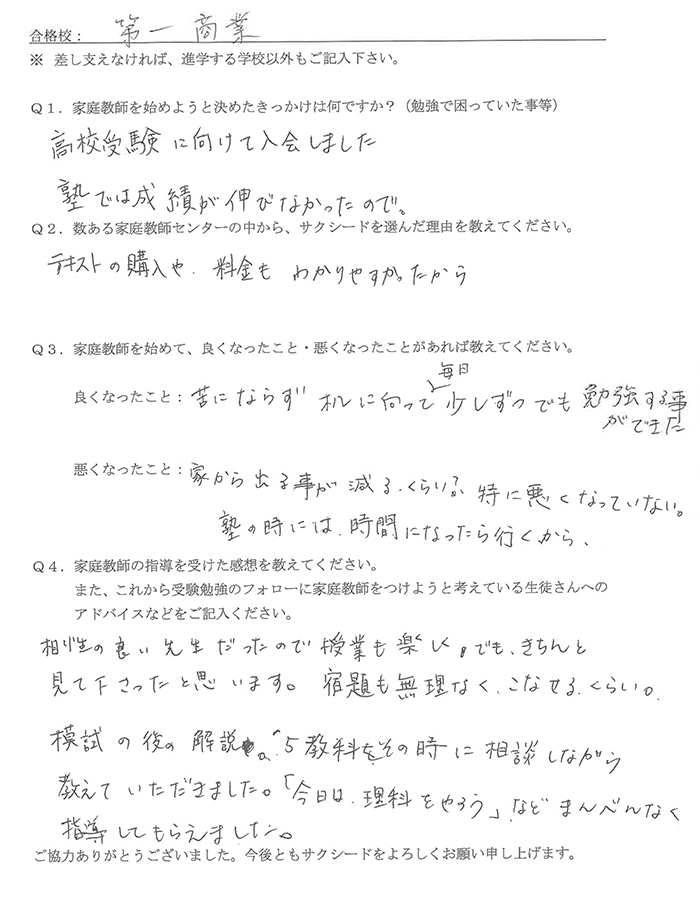 合格校： 第一商業
※ 差し支えなければ、進学する学校以外もご記入下さい。
Q１．家庭教師を始めようと決めたきっかけは何ですか？（勉強で困っていた事等）
高校受験に向けて入会しました
塾では成績が伸びなかったので。
Q２．数ある家庭教師センターの中から、サクシードを選んだ理由を教えてください。
テキストの購入や、料金も わかりやすかったから
Q３．家庭教師を始めて、良くなったこと・悪くなったことがあれば教えてください。
毎日
良くなったこと：苦にならず 机に向って 少しずつでも 勉強する事
ができた
悪くなったこと：家から出る事が減る、くらい？、特に悪くなっていない。
塾の時には、時間になったら行くから、
Q４．家庭教師の指導を受けた感想を教えてください。
また、これから受験勉強のフォローに家庭教師をつけようと考えている生徒さんへの
アドバイスなどをご記入ください。
相性の良い先生だったので授業も楽しく、でも、きちんと
見て下さったと思います。宿題も無理なく、こなせる、くらい。
模試の後の解説は、5教科をその時に相談しながら
教えていただきました。「今日は、理科をやろう」など まんべんなく
指導してもらえました。
ご協力ありがとうございました。今後ともサクシードをよろしくお願い申し上げます。